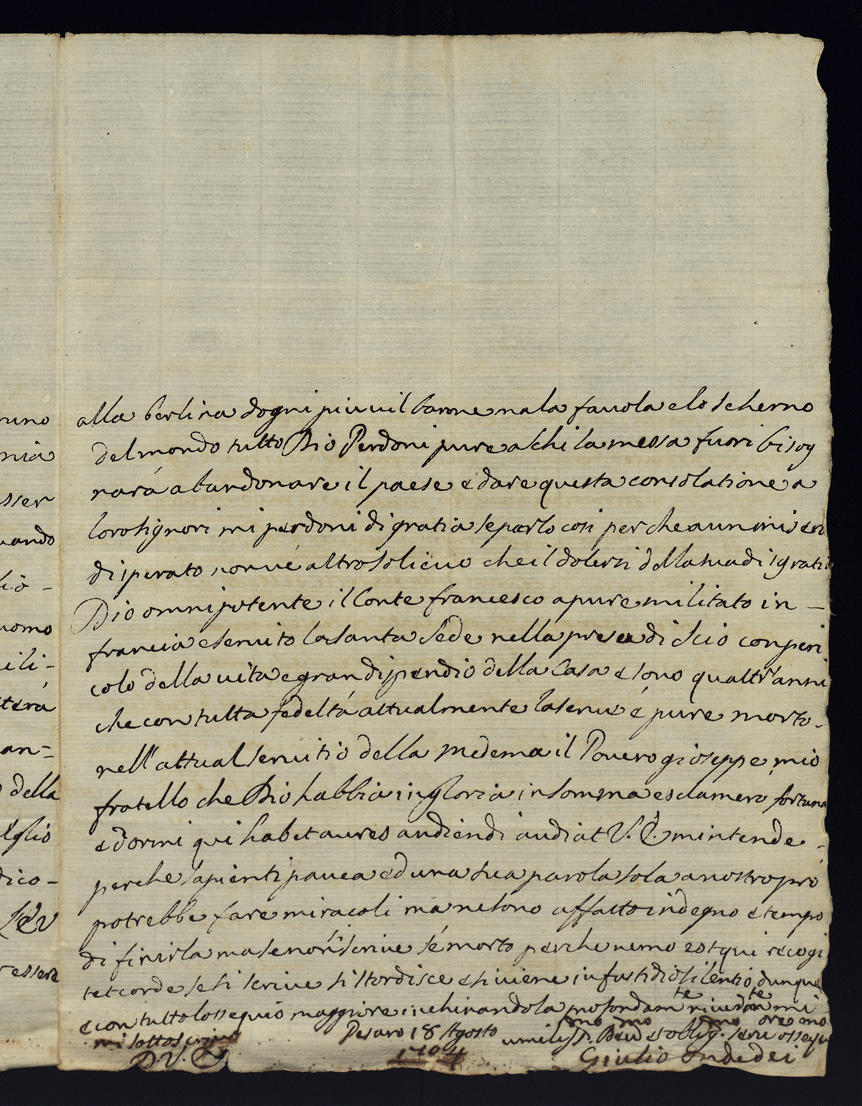 alla berlina dogni piu vil barone ma la fauola e lo scherno
del mondo tutto Dio Perdoni pure a chi la messa fuori bisog
nará abandonare il paese e dare questa consolatione a
loro signori mi perdoni di gratia se parlo cosi perche a un
disperato non vé altro solieuo che il dolersi della sua disgratia
Dio omnipotente il Conte francesco a pure militato in -
francia e seruito la santa Sede nella presa di Scio con peri
colo della uita e gran dispendio della Casa e sono quattr'anni
che con tutta fedeltá attualmente la serue é pure morto
nell'attual seruitio della medema il Pouero gioseppe mio
fratello che Dio habbia in gloria in somma esclamero fortuna
e dormi qui habet aures audiendi audiat V. E. m'intende
perche sapienti pauca ed una sua parola sola a nostro pró
potrebbe fare miracoli ma ne sono affatto indegno e tempo
di finirla ma se non si scriue sé morto perche nemo est qui recogi
tet corde se si scriue si stordisce e si uiene in fastidio silentio, dunque
e con tutto l'ossequio maggiore inchinandola profondamte riuerentemte mi
mi sottoscriuo
D. V. E.
Pesaro 18 Agosto
1704
umiliss. Deu e obblig. seru ossequ
Giulio Ondedei
runo
nia
sser
uando
lio -
uomo
ili -
terá
an -
della
glio
dico -
essere